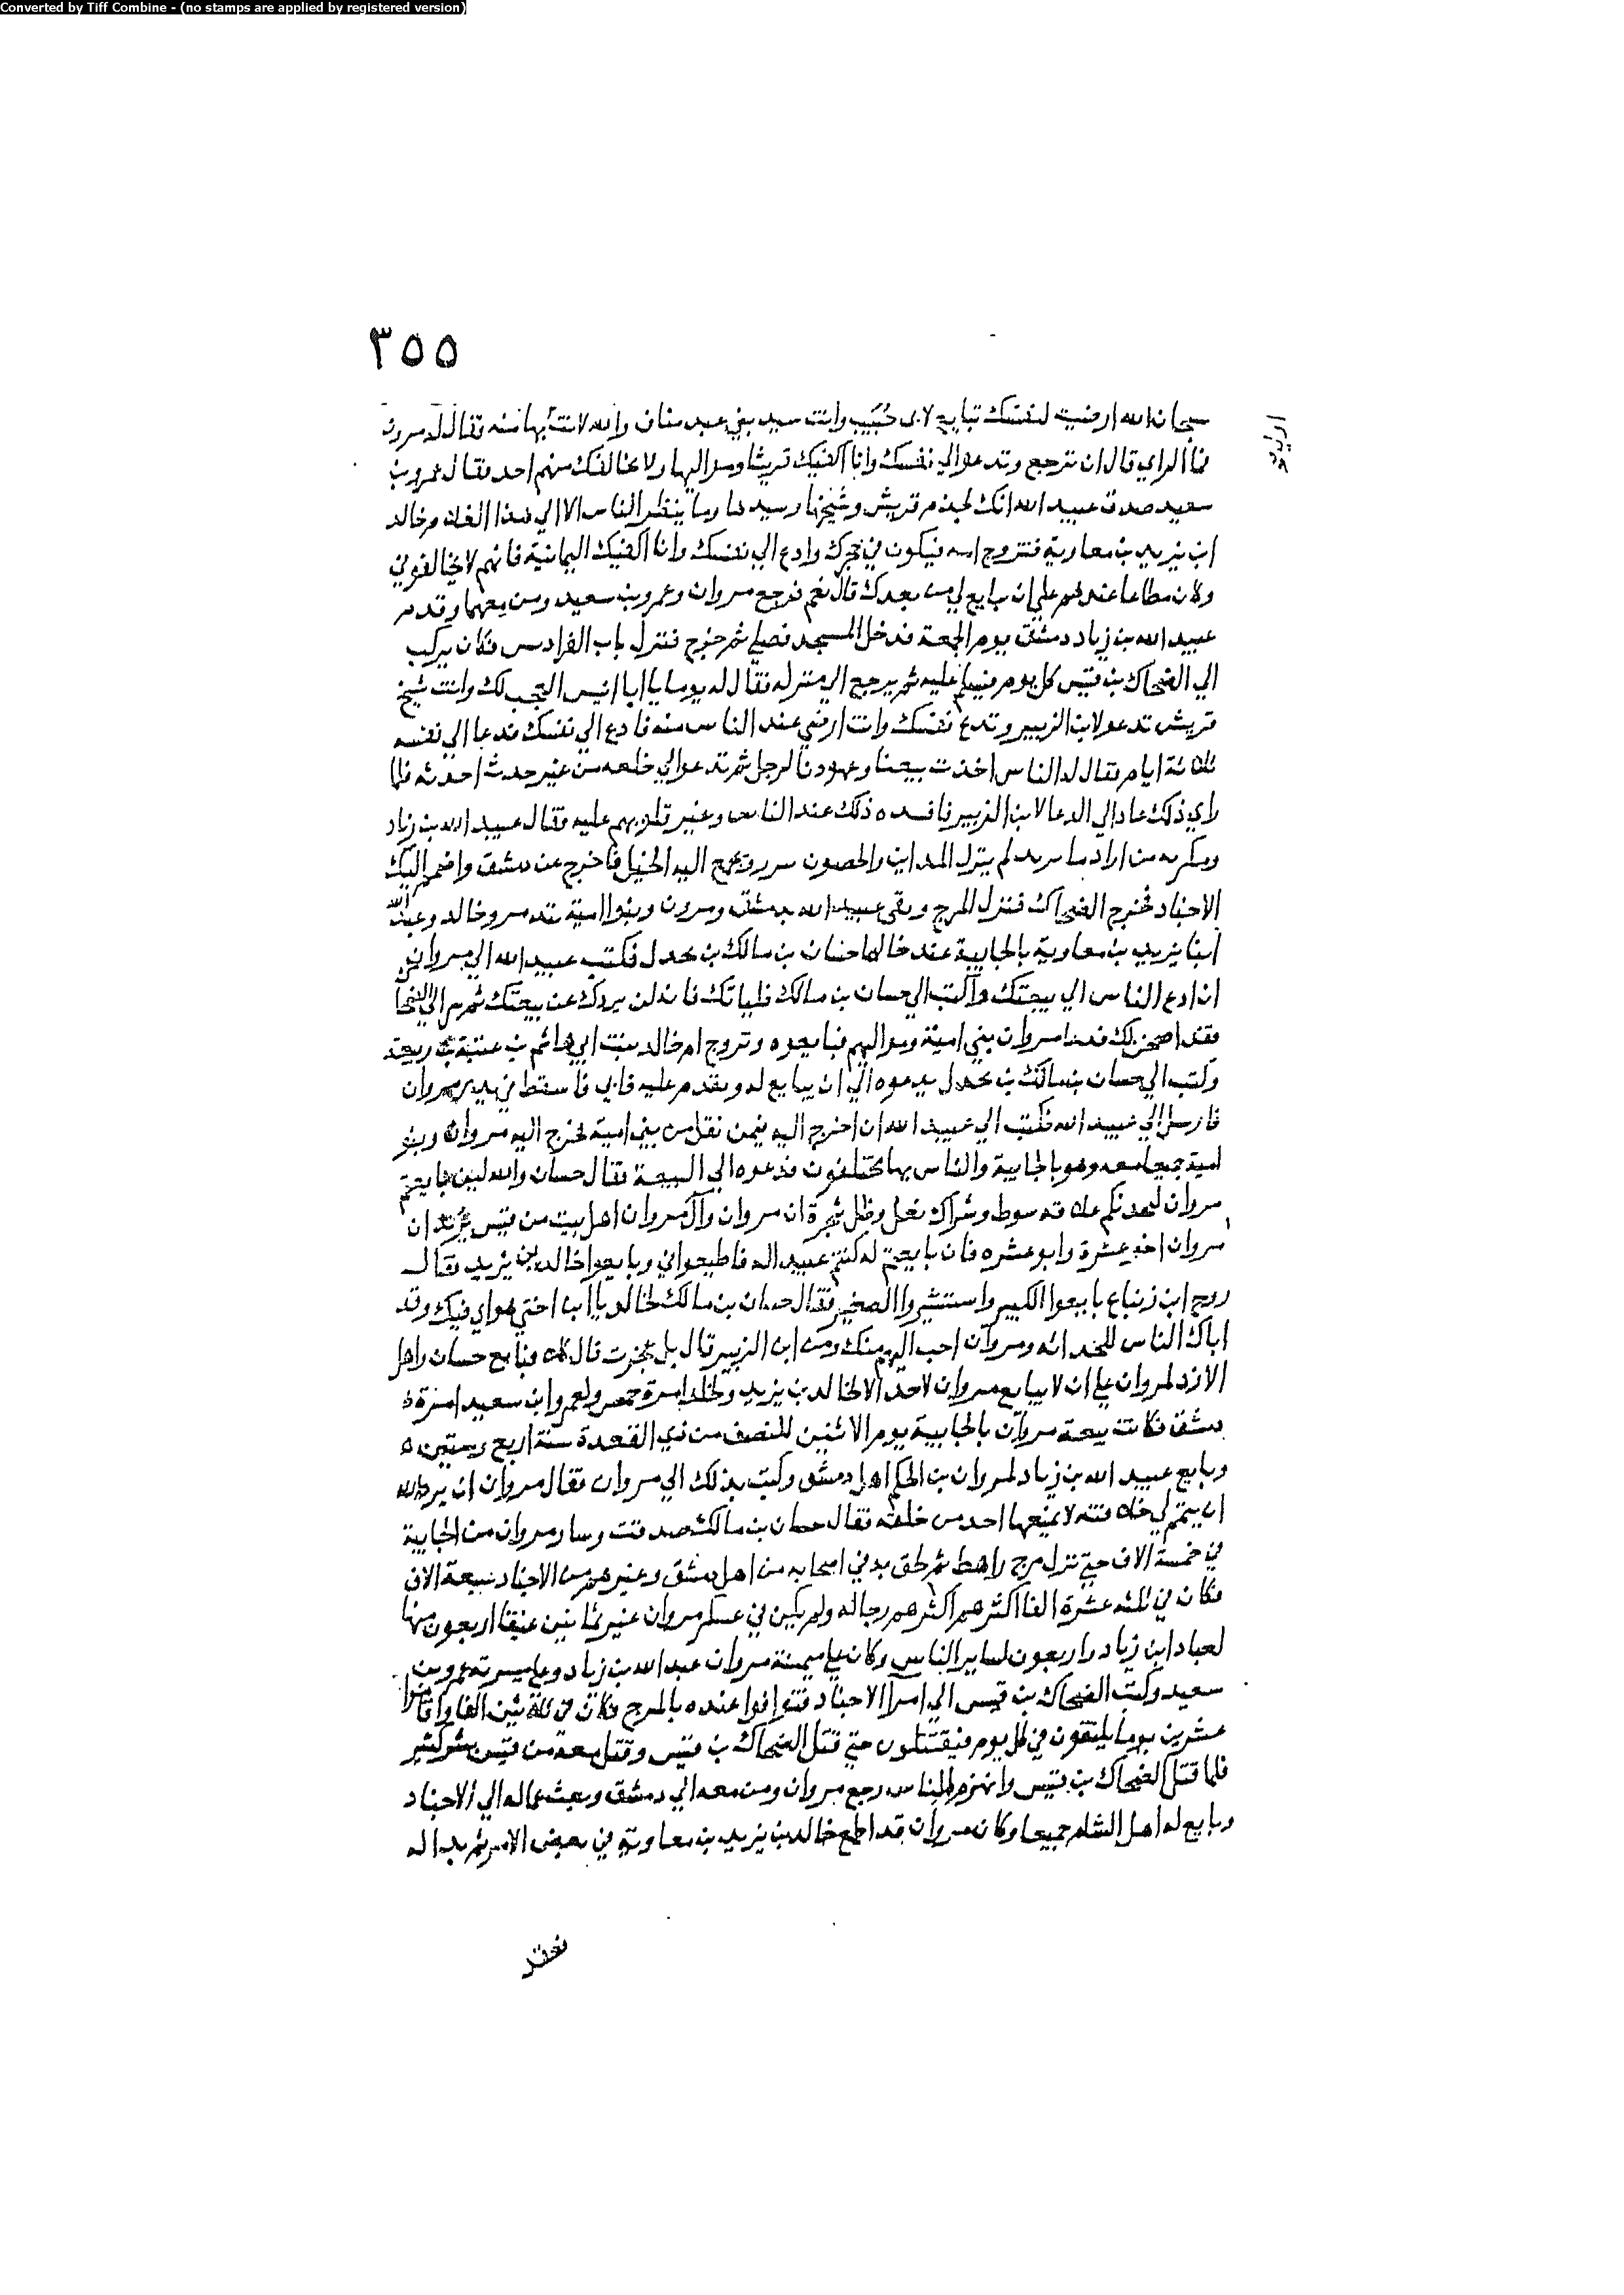 Converted by Tiff Combine - (no stamps are applied by registered version)
٣٥٥
سبحان الله ارضيت لنفسك تبايع لابى خُبَيب وانت سيد بني عبد مناف والله لانت اَبها منه فقال له مرون
فما الراي قال ان ترجع وتدعو الي نفسك وانا اكفيك قريشا ومواليها ولا يخالفك منهم احد فقال عمرو بن
سعيد صدق عبيد الله انك لجذم قريش وشيخها وسيدها وما ينظر الناس الا الي هذا الغلام خالد
ابن يزيد بن معاوية فتزوج امه فيكون في حجرك وادع الي نفسك وانا اكفيك اليمانية فانهم لا يخالفوني
وكان مطاعا عندهم علي ان يبايع لي من بعدك قال نعم فرجع مروان وعمرو بن سعيد ومن معهما وقدم
عبيد الله بن زياد دمشق يوم الجمعة فدخل المسجد فصلي ثم خرج فنزل باب الفراديس فكان يركب
الي الضحاك بن قيس كل يوم فيسلم عليه ثم يرجع الي منزله فقال له يوما يا ابا انيس العجب لك وانت شيخ
قريش تدعو لابن الزبير وتدع نفسك وانت ارضي عند الناس منه فادع الي نفسك فدعا الي نفسه
ثلاثة ايام فقال له الناس اخذت بيعتنا وعهودنا لرجل ثم تدعو الي خلعه من غير حدث احدثه فلما
راي ذلك عاد الي الدعا لابن الزبير فافسده ذلك عند الناس وغير قلوبهم عليه فقال عبيد الله بن زياد
ومكر به من اراد ما تريد لم ينزل المداين والحصون يبرز ويجمع اليه الخيل فاخرج عن دمشق واضمم اليك
الاجناد فخرج الضحاك فنزل المرج وبقى عبيد الله بدمشق ومرون وبنوا امية بتدمر وخالد وعبد الله
ابنا يزيد بن معاوية بالجابية عند خالهما حسان بن مالك بن بحدل فكتب عبيد الله الي مروان
ان ادع الناس الي بيعتك واكتب الي حسان بن مالك فلياتك فانه لن يردك عن بيعتك ثم سر الي الضحاك
فقد اصحر لك فدعا مروان بني امية ومواليهم فبايعوه وتزوج ام خالد بنت ابي هاشم بن عتبة بن ربيعة
وكتب الي حسان بن مالك بن بحدل يدعوه الي ان يبايع له ويقدم عليه فابي فاسقط في يدي مروان
فارسل الي عبيد الله فكتب الي عبيد الله ان اخرج اليه فيمن معك من بني امية فخرج اليه مروان وبنو
امية جميعا معه وهو بالجابية والناس بها يختلفون فدعوه الي البيعة فقال حسان والله لين بايعتم
مروان ليحسدنكم علاقة سوط وشراك نعل وظل شجرة ان مروان وآل مروان اهل بيت من قيس يُريد ان
مروان اخو عشرة وابو عشره فان بايعتم له كنتم عبيد اله فاطيعواني وبايعوا خالد بن يزيد فقال
روح ابن زنباع بايعوا الكبير واستشبوا الصغير فقال حسان بن مالك لخالد يا ابن اختي هواي فيك وقد
اباك الناس للحداثه ومروان احب اليهم منك ومن ابن الزبير قال بل عجزت قال كلا فبايع حسان واهل
الازد لمروان علي ان لا يبايع مروان لاحد الا لخالد بن يزيد ولخالد امرة حمص ولعمرو ابن سعيد امرة
دمشق فكانت بيعة مروان بالجابية يوم الاثنين للنصف من ذي القعدة سنة اربع وستين ه
وبايع عبيد الله بن زياد لمروان بن الحكم اهل دمشق وكتب بذلك الي مروان فقال مروان ان يرد الله
ان يتمم لي خلافته لا يمنعها احد من خلقه فقال حسان بن مالك صدقت وسار مروان من الجابية
في خمسة الاف حتي نزل مرج راهط ثم لحق به في اصحابه من اهل دمشق وغيرهم من الاجناد سبعة الاف
فكان في ثلثه عشرة الفا اكثرهم اكثرهم رجاله ولم يكن في عسكر مروان غير ثمانين عتيقا اربعون منها
لعباد ابن زياد واربعون لساير الناس وكان علي ميمنة مروان عبد الله بن زياد وعلي ميسرته عمرو بن
سعيد وكتب الضحاك بن قيس الي امرا الاجناد فتوافوا عنده بالمرج فكان في ثلاثين الفا واقاموا
عشرين يوما يلتقون في كل يوم فيقتتلون حتي قتل الضحاك بن قيس وقتل معه من قيس بشر كثير
فلما قتل الضحاك بن قيس وانهزم الناس رجع مروان ومن معه الي دمشق وبعث عماله الي الاجناد
وبايع له اهل الشام جميعا وكان مروان قد اطمع خالد بن يزيد بن معاوية في بعض الامر ثم بدا له